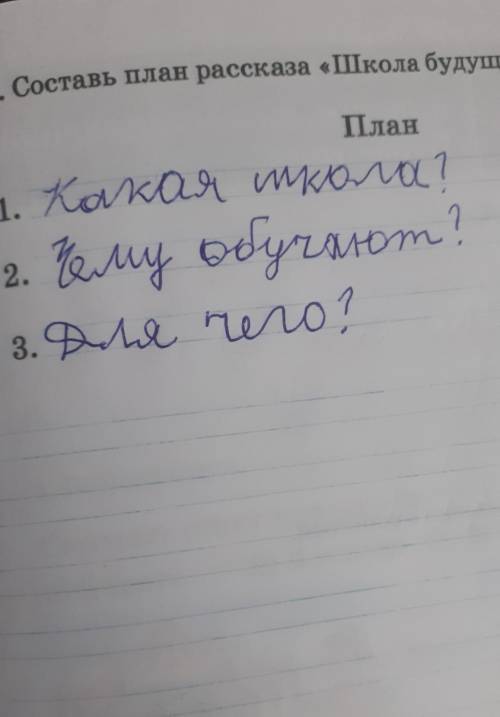 . Составь план рассказа «Школа будущ
План
1. Какая школа?
2. Чему обучают?
3. Для чего?